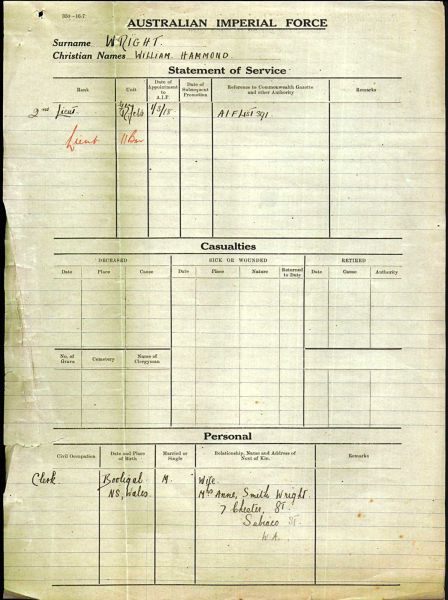 350—16.7.
AUSTRALIAN IMPERIAL FORCE
Surname WRIGHT.
Christian Names WILLIAM HAMMOND.
Statement of Service
Rank
Unit
Date of Appointment to A.I.F.
Date of Subsequent Promotion
Reference to Commonwealth Gazette and other Authority
Remarks
2nd Lieut.
4/3/18
AIF List 391
Lieut 11 Bn
Casualties
DECEASED
SICK OR WOUNDED
RETIRED
Date Place Cause
Date Place Nature Returned to Duty
Date Cause Authority
No. of Grave Cemetery Name of Clergyman
Personal
Civil Occupation
Date and Place of Birth
Married or Single
Relationship, Name and Address of Next of Kin.
Remarks
Clerk Booligal M. Wife.
NS, Wales. Mrs Anne, Smith Wright.
7 Chester, St.
Subiaco
W.A.